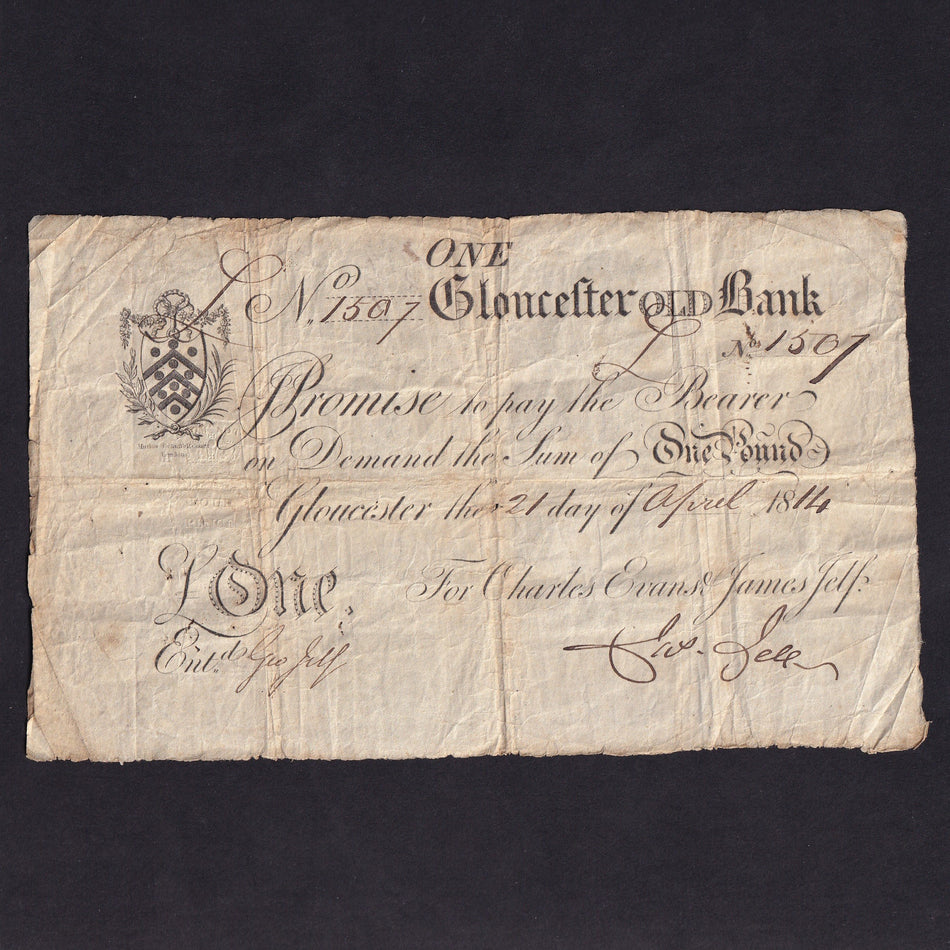 ONE
£ No. 1507 Gloucester OLD Bank
£ No. 1507
I Promise to pay the Bearer
on Demand the Sum of One Pound
Gloucester the 21 day of April 1814
£One. For Charles Evans & James Jelf.
Entd. Geo Jelf Jas. Jelf
London